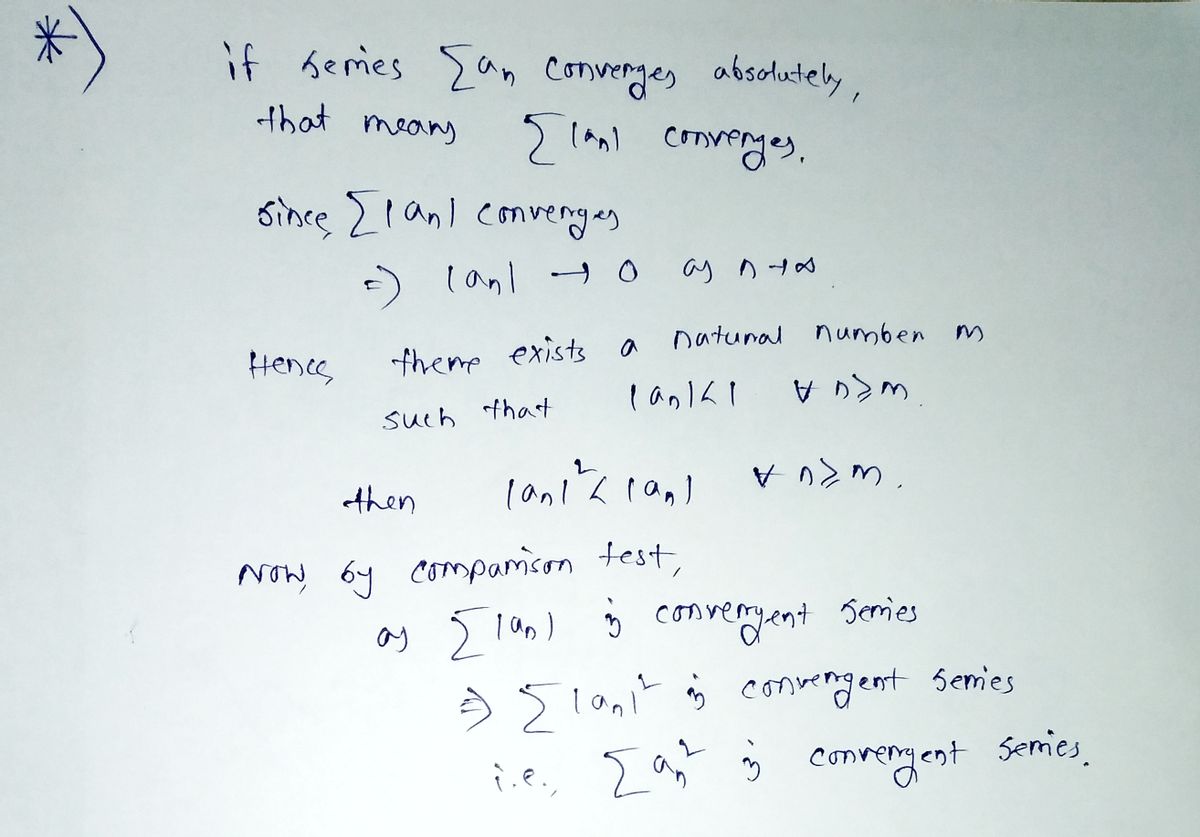 *)
if series ∑an converges absolutely,
that means ∑|an| converges.
since, ∑|an| converges
=) |an| → 0 as n→∞
Hence, there exists a natural number m
such that |an|<1 ∀ n≥m.
then |an|²< |an| ∀ n≥m.
Now, by comparison test,
as ∑|an| is convergent series
⇒ ∑|an|² is convergent series
i.e., ∑an² is convergent series.